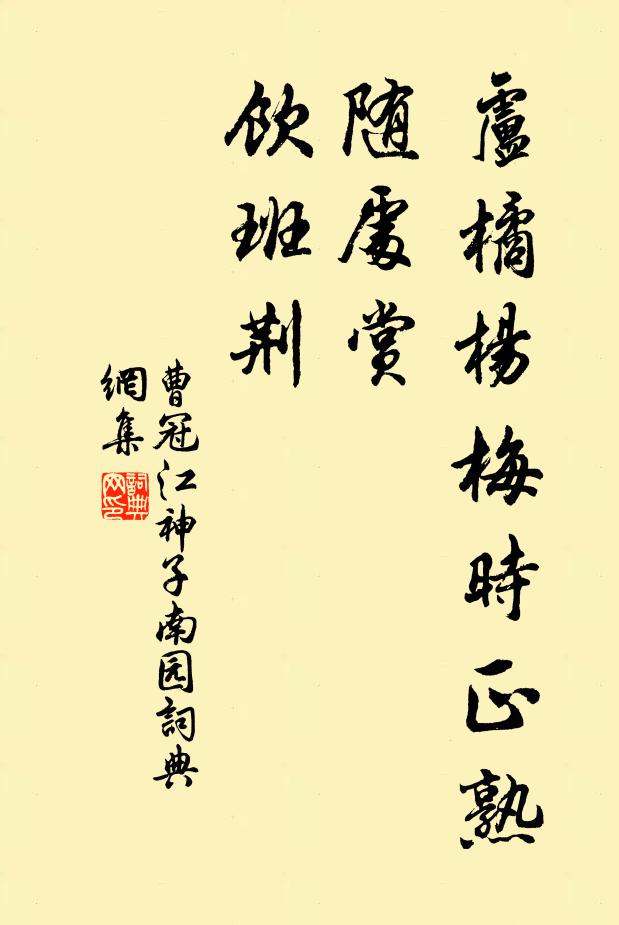 盧橘楊梅時正熟
随處賞
飲班荆
曹冠江神子南园詞典
網集
詞典
网印